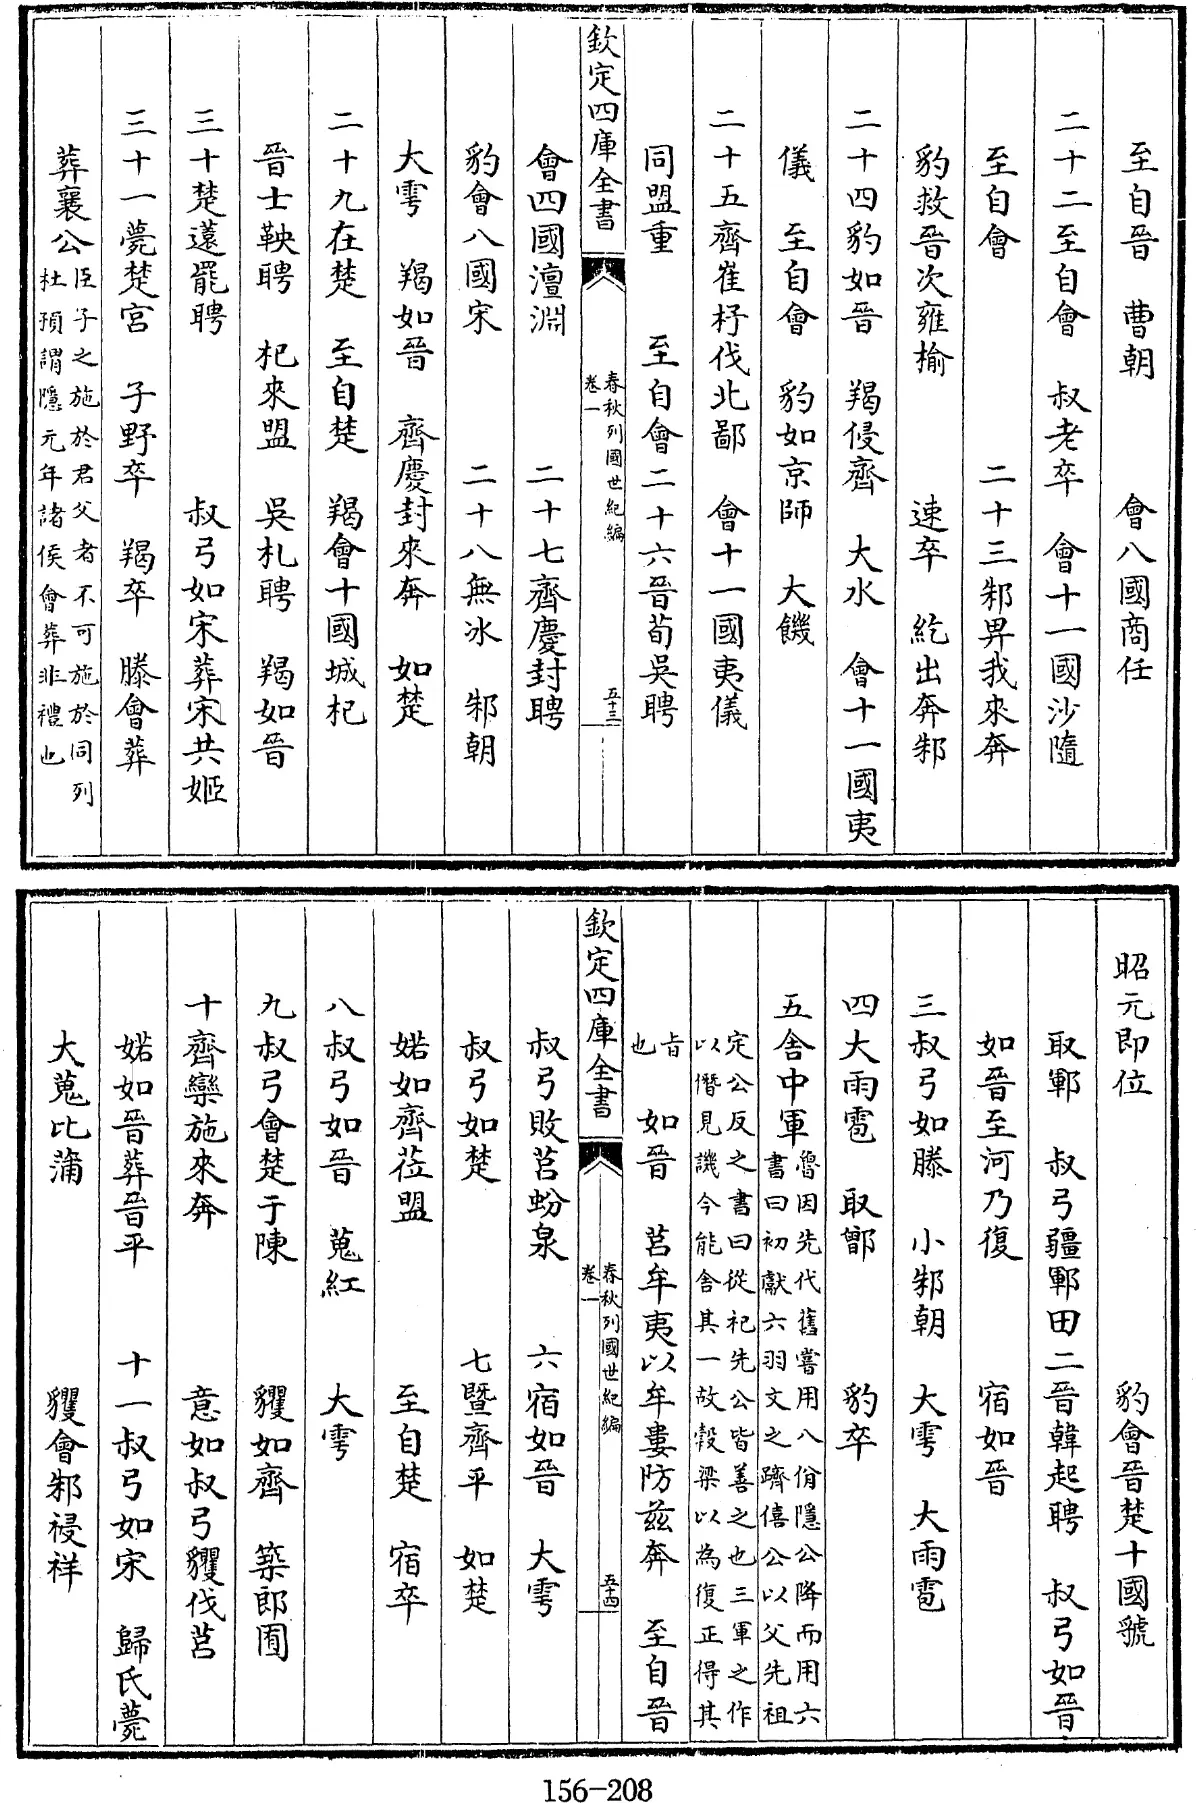 至自晉　曹朝　會八國商任
二十二至自會　叔老卒　會十一國沙隨
至自會　二十三邾畀我來奔
豹救晉次雍榆　速卒　紇出奔邾
二十四豹如晉　羯侵齊　大水　會十一國夷
儀　至自會　豹如京師　大饑
二十五齊崔杼伐北鄙　會十一國夷儀
同盟重　至自會二十六晉荀吳聘
欽定四庫全書
春秋列國世紀編
卷一
五十三
會四國澶淵　二十七齊慶封聘
豹會八國宋　二十八無冰　邾朝
大雩　羯如晉　齊慶封來奔　如楚
二十九在楚　至自楚　羯會十國城杞
晉士鞅聘　杞來盟　吳札聘　羯如晉
三十楚薳罷聘　叔弓如宋葬宋共姬
三十一薨楚宮　子野卒　羯卒　滕會葬
葬襄公臣子之施於君父者不可施於同列
杜預謂隱元年諸侯會葬非禮也
昭元即位　豹會晉楚十國虢
取鄆　叔弓疆鄆田二晉韓起聘　叔弓如晉
如晉至河乃復　宿如晉
三叔弓如滕　小邾朝　大雩　大雨雹
四大雨雹　取鄫　豹卒
五舍中軍魯因先代舊嘗用八佾隱公降而用六
書曰初獻六羽文之躋僖公以父先祖
定公反之書曰從祀先公皆善之也三軍之作
以僭見譏今能舍其一故榖梁以為復正得其
旨
也　如晉　莒牟夷以牟婁防兹奔　至自晉
欽定四庫全書
春秋列國世紀編
卷一
五十四
叔弓敗莒蚡泉　六宿如晉　大雩
叔弓如楚　七暨齊平　如楚
婼如齊莅盟　至自楚　宿卒
八叔弓如晉　蒐紅　大雩
九叔弓會楚于陳　貜如齊　築郎囿
十齊欒施來奔　意如叔弓貜伐莒
婼如晉葬晉平　十一叔弓如宋　歸氏薨
大蒐比蒲　貜會邾祲祥
156-208